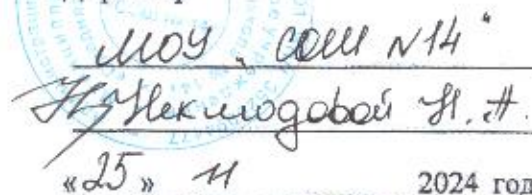 МОУ „СОШ N14"
Неклюдовой Н.А.
«25» 11 2024 год